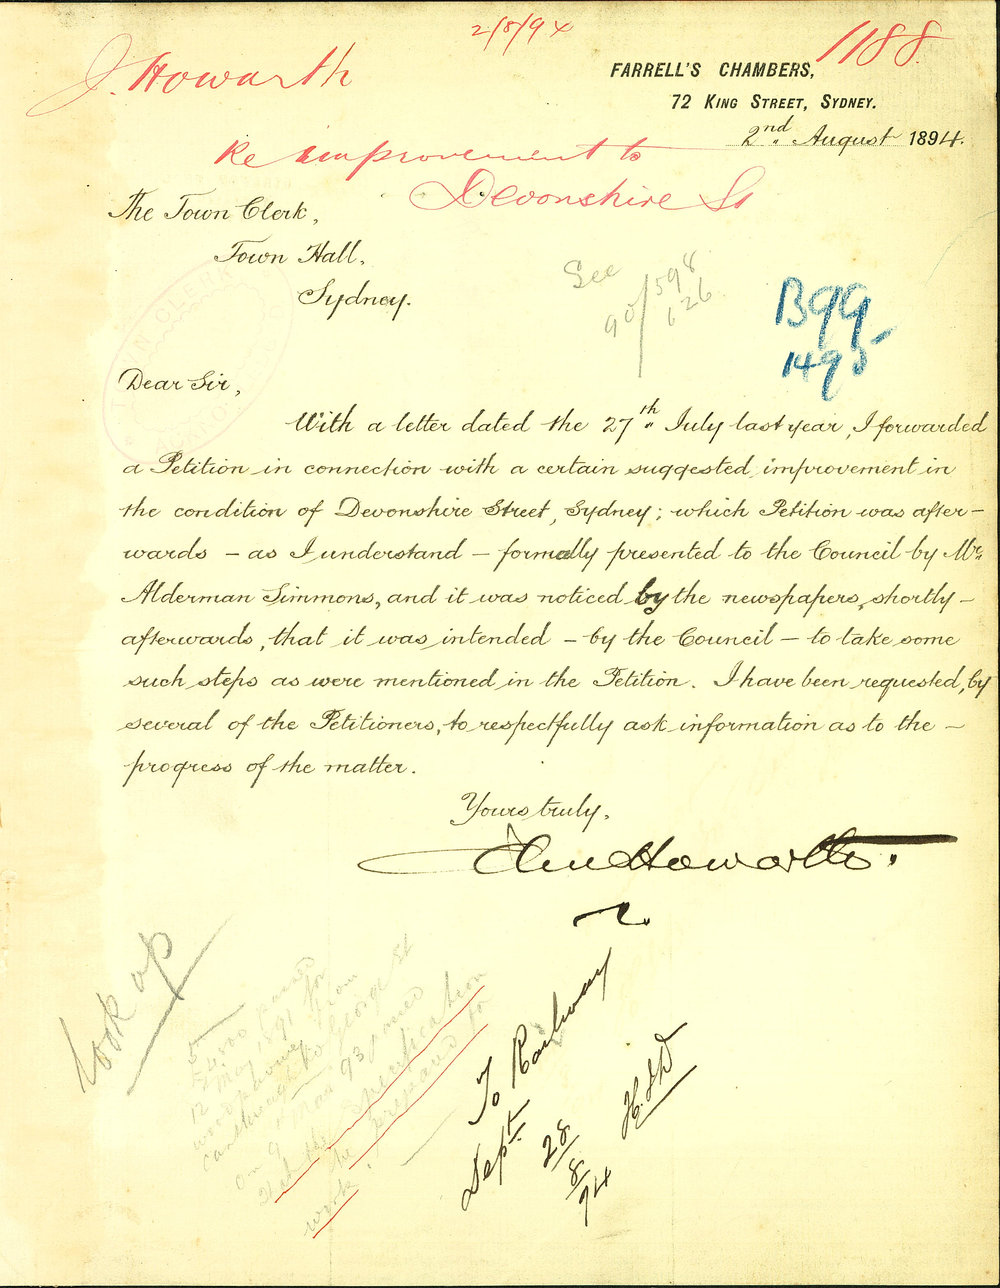 2/8/94
1188.
J. Howarth
FARRELL'S CHAMBERS,
72 KING STREET, SYDNEY.
2nd August 1894.
Re improvement to
Devonshire St
The Town Clerk,
Town Hall,
Sydney.
See
90/598
626
B99
1495
TOWN CLERK
Dear Sir,
With a letter dated the 27th July last year, I forwarded
a Petition in connection with a certain suggested improvement in
the condition of Devonshire Street, Sydney; which Petition was after-
wards – as I understand – formally presented to the Council by Mr.
Alderman Simmons, and it was noticed by the newspapers, shortly –
afterwards, that it was intended – by the Council – to take some
such steps as were mentioned in the Petition. I have been requested, by
several of the Petitioners, to respectfully ask information as to the –
progress of the matter.
Yours truly,
John Howarth.
Look up
May 1891 for
woodpaving from
to George St
on 9 Mar 93
specification
be prepared for
work.
To Railway
Dept
28/8/94